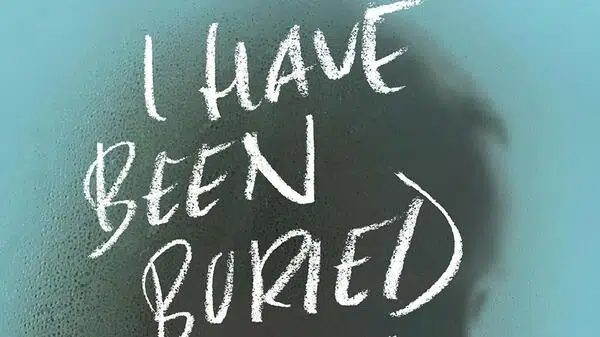 I HAVE
BEEN
BURIED